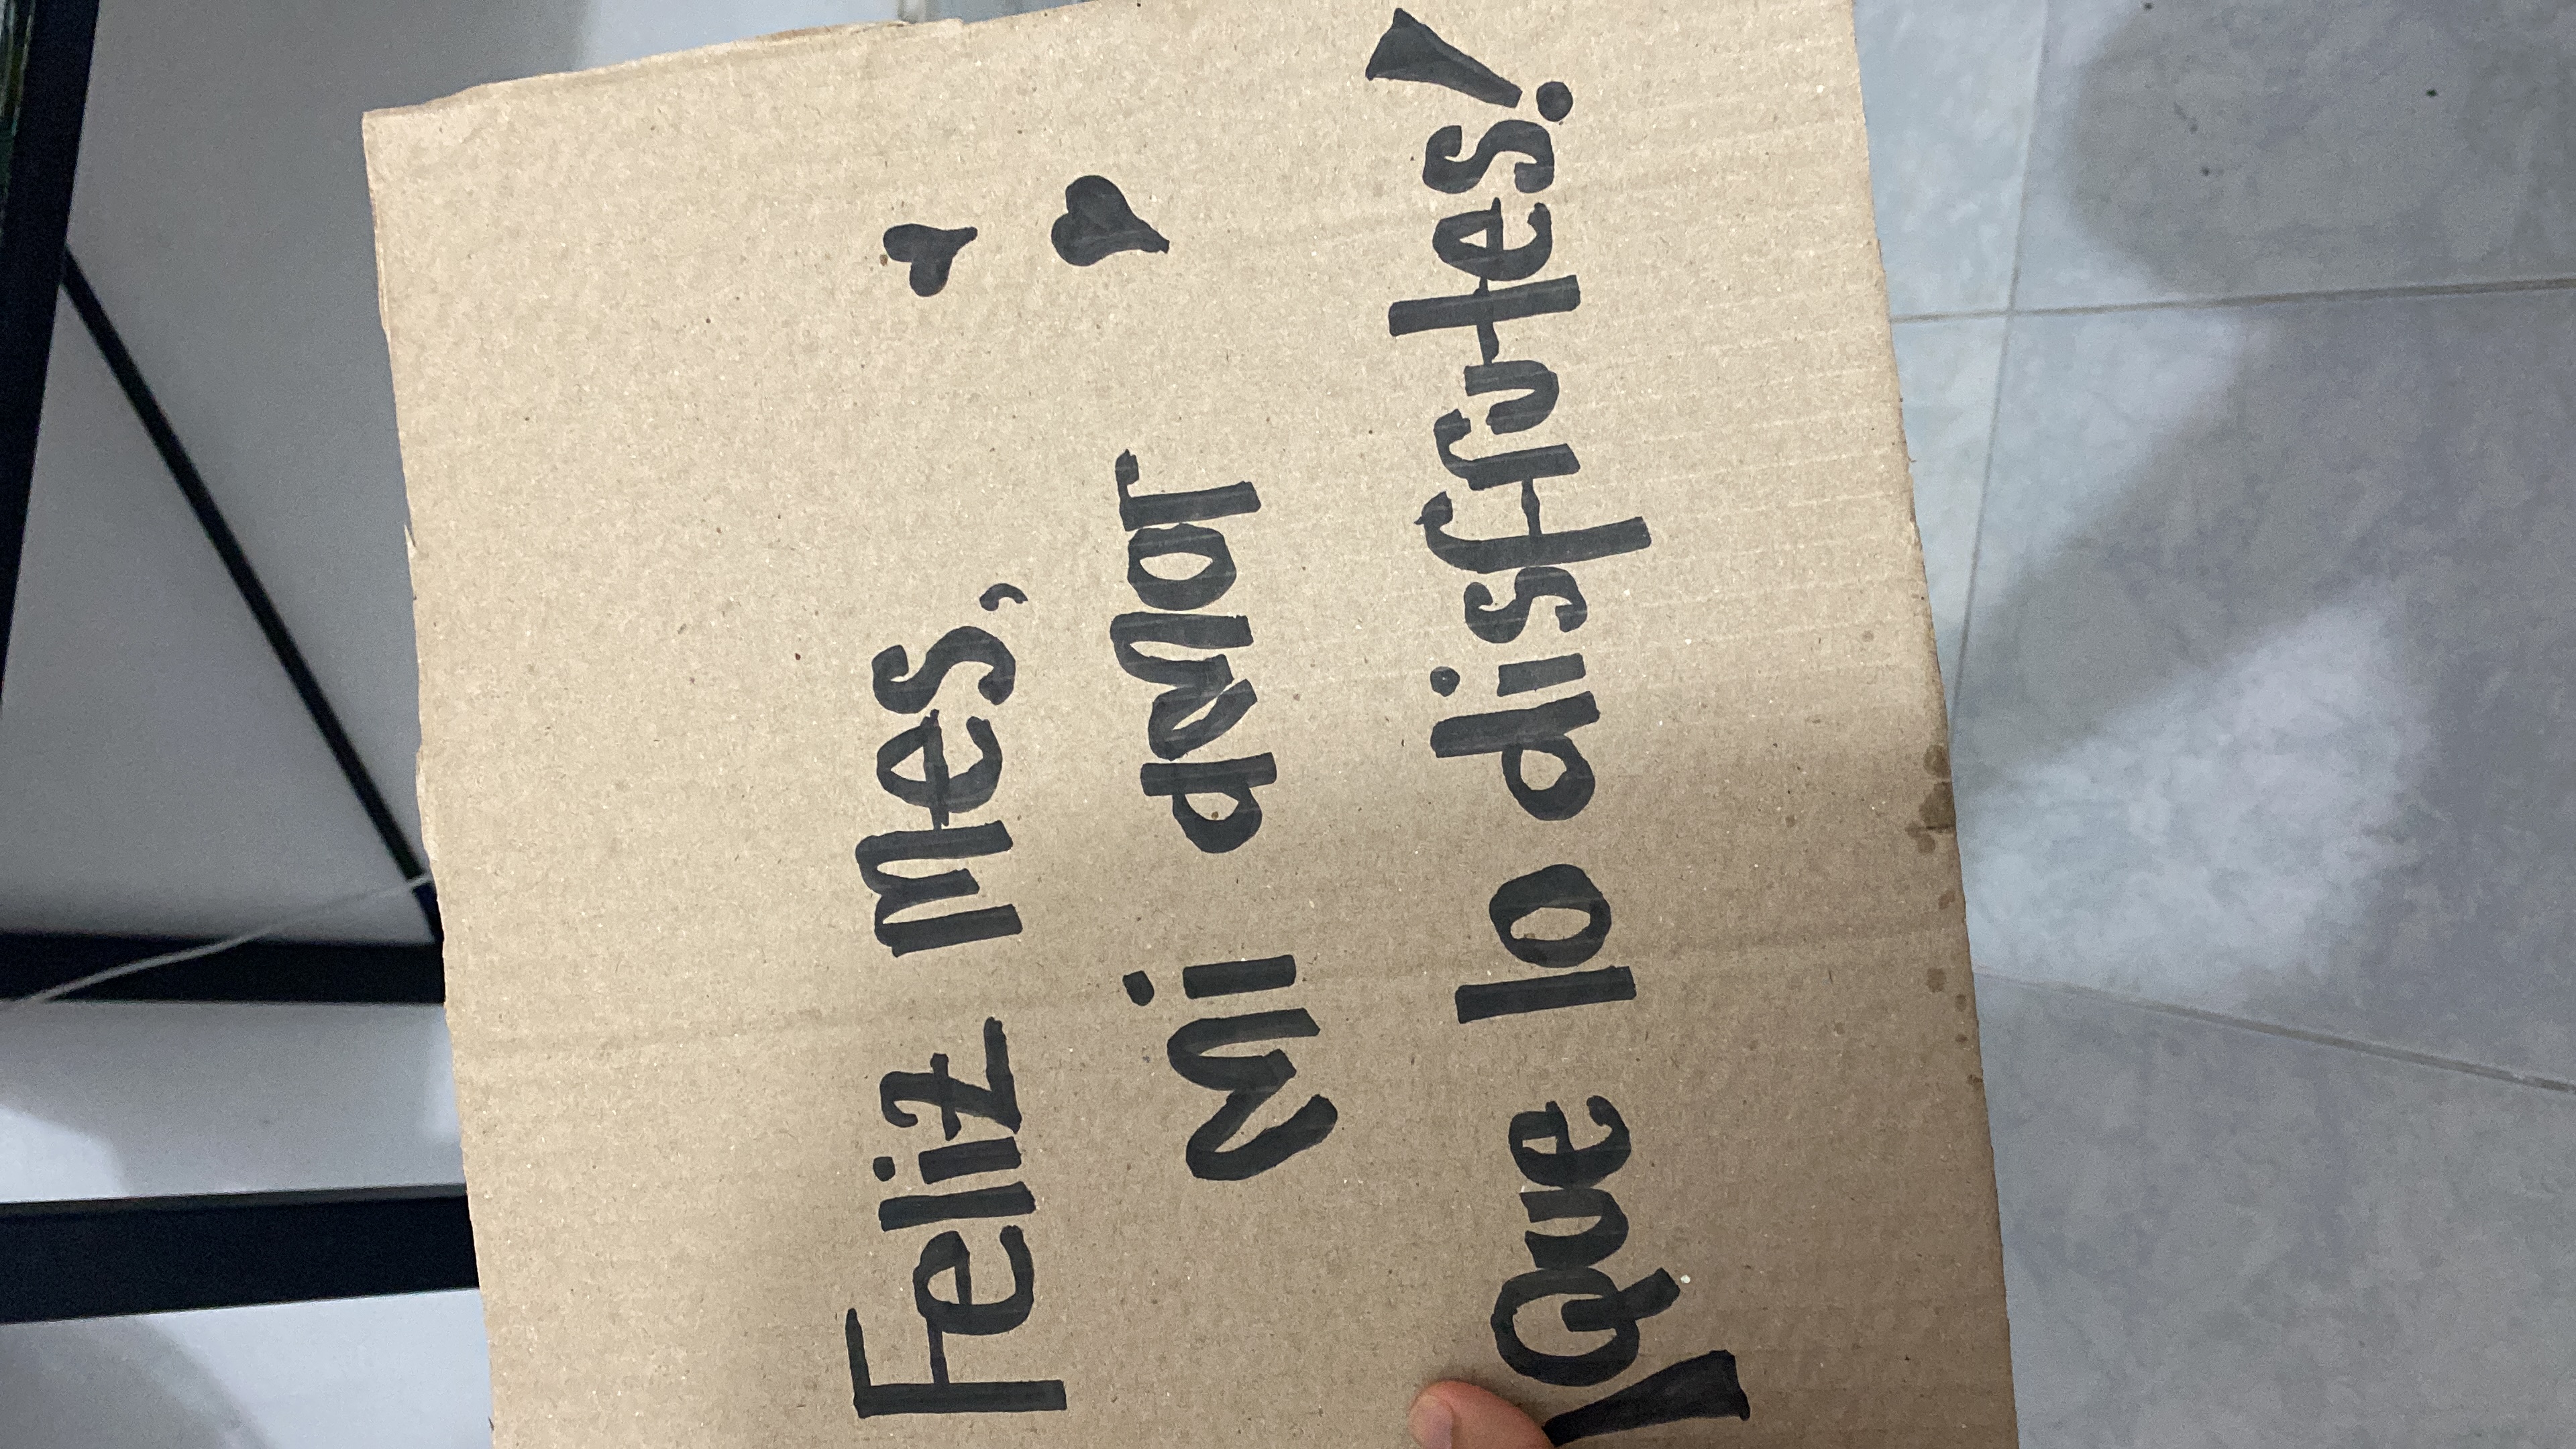 Feliz mes,
mi amor
¡Que lo disfrutes!